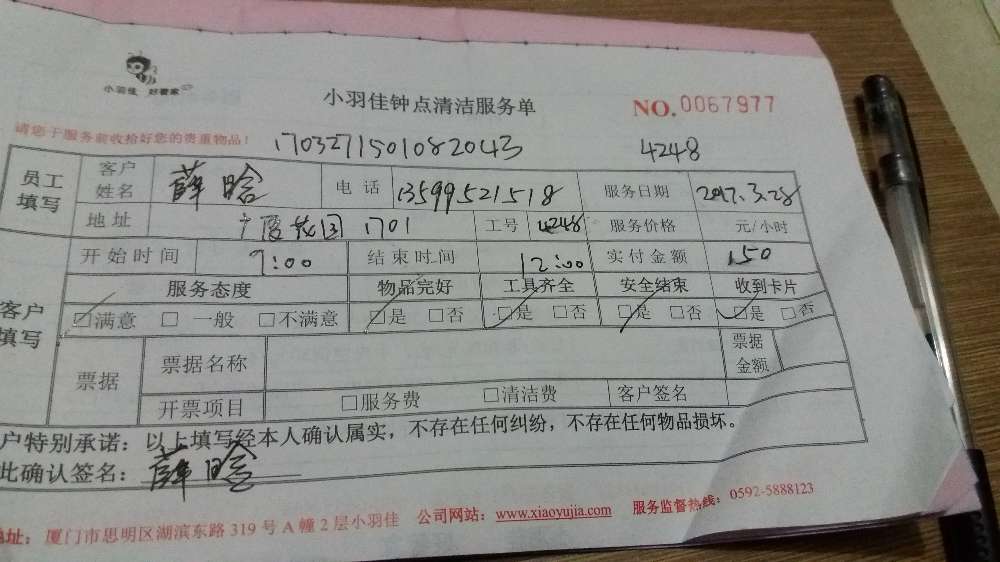 小羽佳 好管家
小羽佳钟点清洁服务单
NO.0067977
请您于服务前收拾好您的贵重物品！
170327150108 2043
4248
员工填写 客户姓名 薛晗 电话 13599521518 服务日期 2017.3.28
地址 广厦花园 1701 工号 4248 服务价格 元/小时
客户填写 开始时间 9:00 结束时间 12:00 实付金额 150
服务态度 物品完好 工具齐全 安全结束 收到卡片
☑满意 □一般 □不满意 ☑是 □否 ☑是 □否 ☑是 □否 ☑是 □否
票据 票据名称 票据金额
开票项目 □服务费 □清洁费 客户签名
户特别承诺：以上填写经本人确认属实，不存在任何纠纷，不存在任何物品损坏。
此确认签名：薛晗
地址：厦门市思明区湖滨东路 319 号 A 幢 2 层小羽佳 公司网站：www.xiaoyujia.com 服务监督热线：0592-5888123